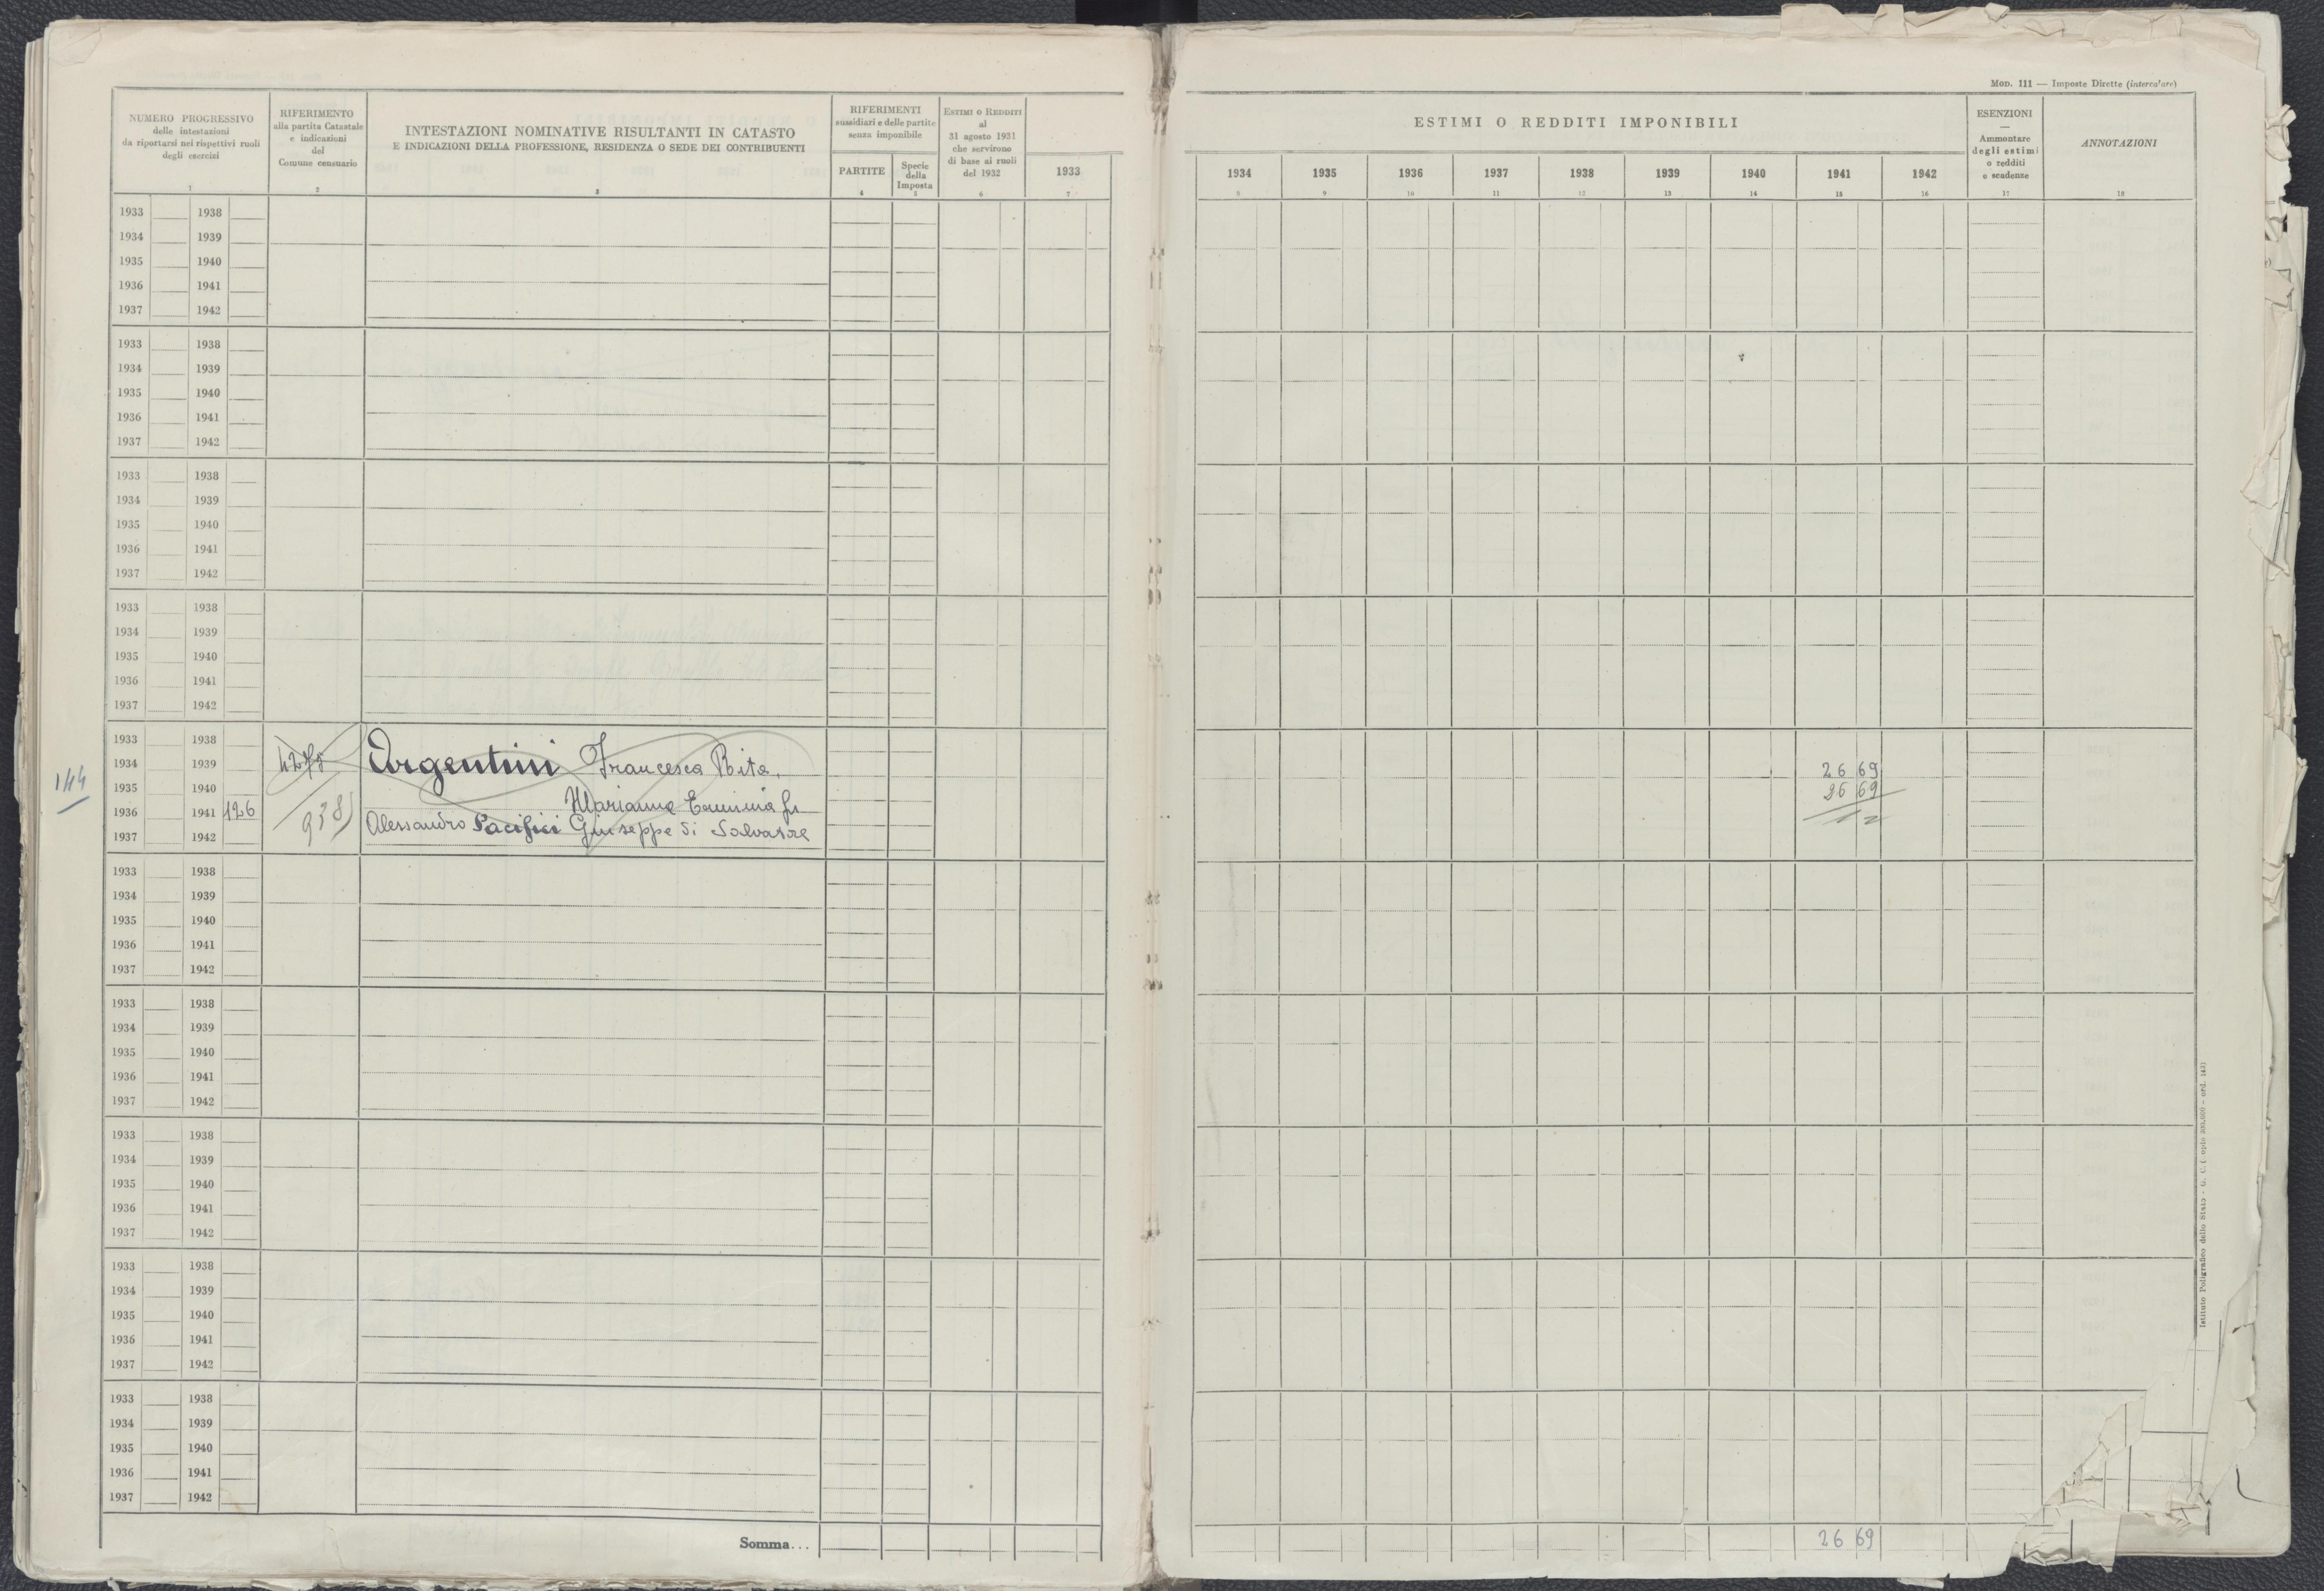 Mod. 111 — Imposte Dirette (intercalare)
NUMERO PROGRESSIVO
delle intestazioni
da riportarsi nei rispettivi ruoli
degli esercizi
1
RIFERIMENTO
alla partita Catastale
e indicazioni
del
Comune censuario
2
INTESTAZIONI NOMINATIVE RISULTANTI IN CATASTO
E INDICAZIONI DELLA PROFESSIONE, RESIDENZA O SEDE DEI CONTRIBUENTI
3
RIFERIMENTI
sussidiari e delle partite
senza imponibile
PARTITE
4
Specie
della
Imposta
5
Estimi o Redditi
al
31 agosto 1931
che servirono
di base ai ruoli
del 1932
6
1933
7
ESTIMI O REDDITI IMPONIBILI
1934 1935 1936 1937 1938 1939 1940 1941 1942
8 9 10 11 12 13 14 15 16
ESENZIONI
—
Ammontare
degli estimi
o redditi
e scadenze
17
ANNOTAZIONI
18
1933 1938
1934 1939
1935 1940
1936 1941
1937 1942
1933 1938
1934 1939
1935 1940
1936 1941
1937 1942
1933 1938
1934 1939
1935 1940
1936 1941
1937 1942
1933 1938
1934 1939
1935 1940
1936 1941
1937 1942
144
1933 1938
1934 1939 Argentini Francesca Rita, 26 69
1935 1940 26 69
1936 1941 126 938 Marianna Erminia fu
1937 1942 Alessandro Pacifici Giuseppe di Salvatore
1933 1938
1934 1939
1935 1940
1936 1941
1937 1942
1933 1938
1934 1939
1935 1940
1936 1941
1937 1942
1933 1938
1934 1939
1935 1940
1936 1941
1937 1942
1933 1938
1934 1939
1935 1940
1936 1941
1937 1942
1933 1938
1934 1939
1935 1940
1936 1941
1937 1942
Somma... 26 69
Istituto Poligrafico dello Stato - G. C.